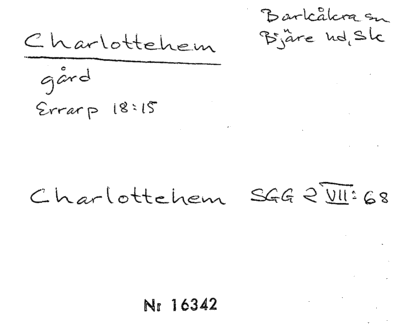 Charlottehem
Barkåkra sn
Bjäre hd, Sk
gård
Errarp 18:15
Charlottehem SGG 2 VII: 68
Nr 16342